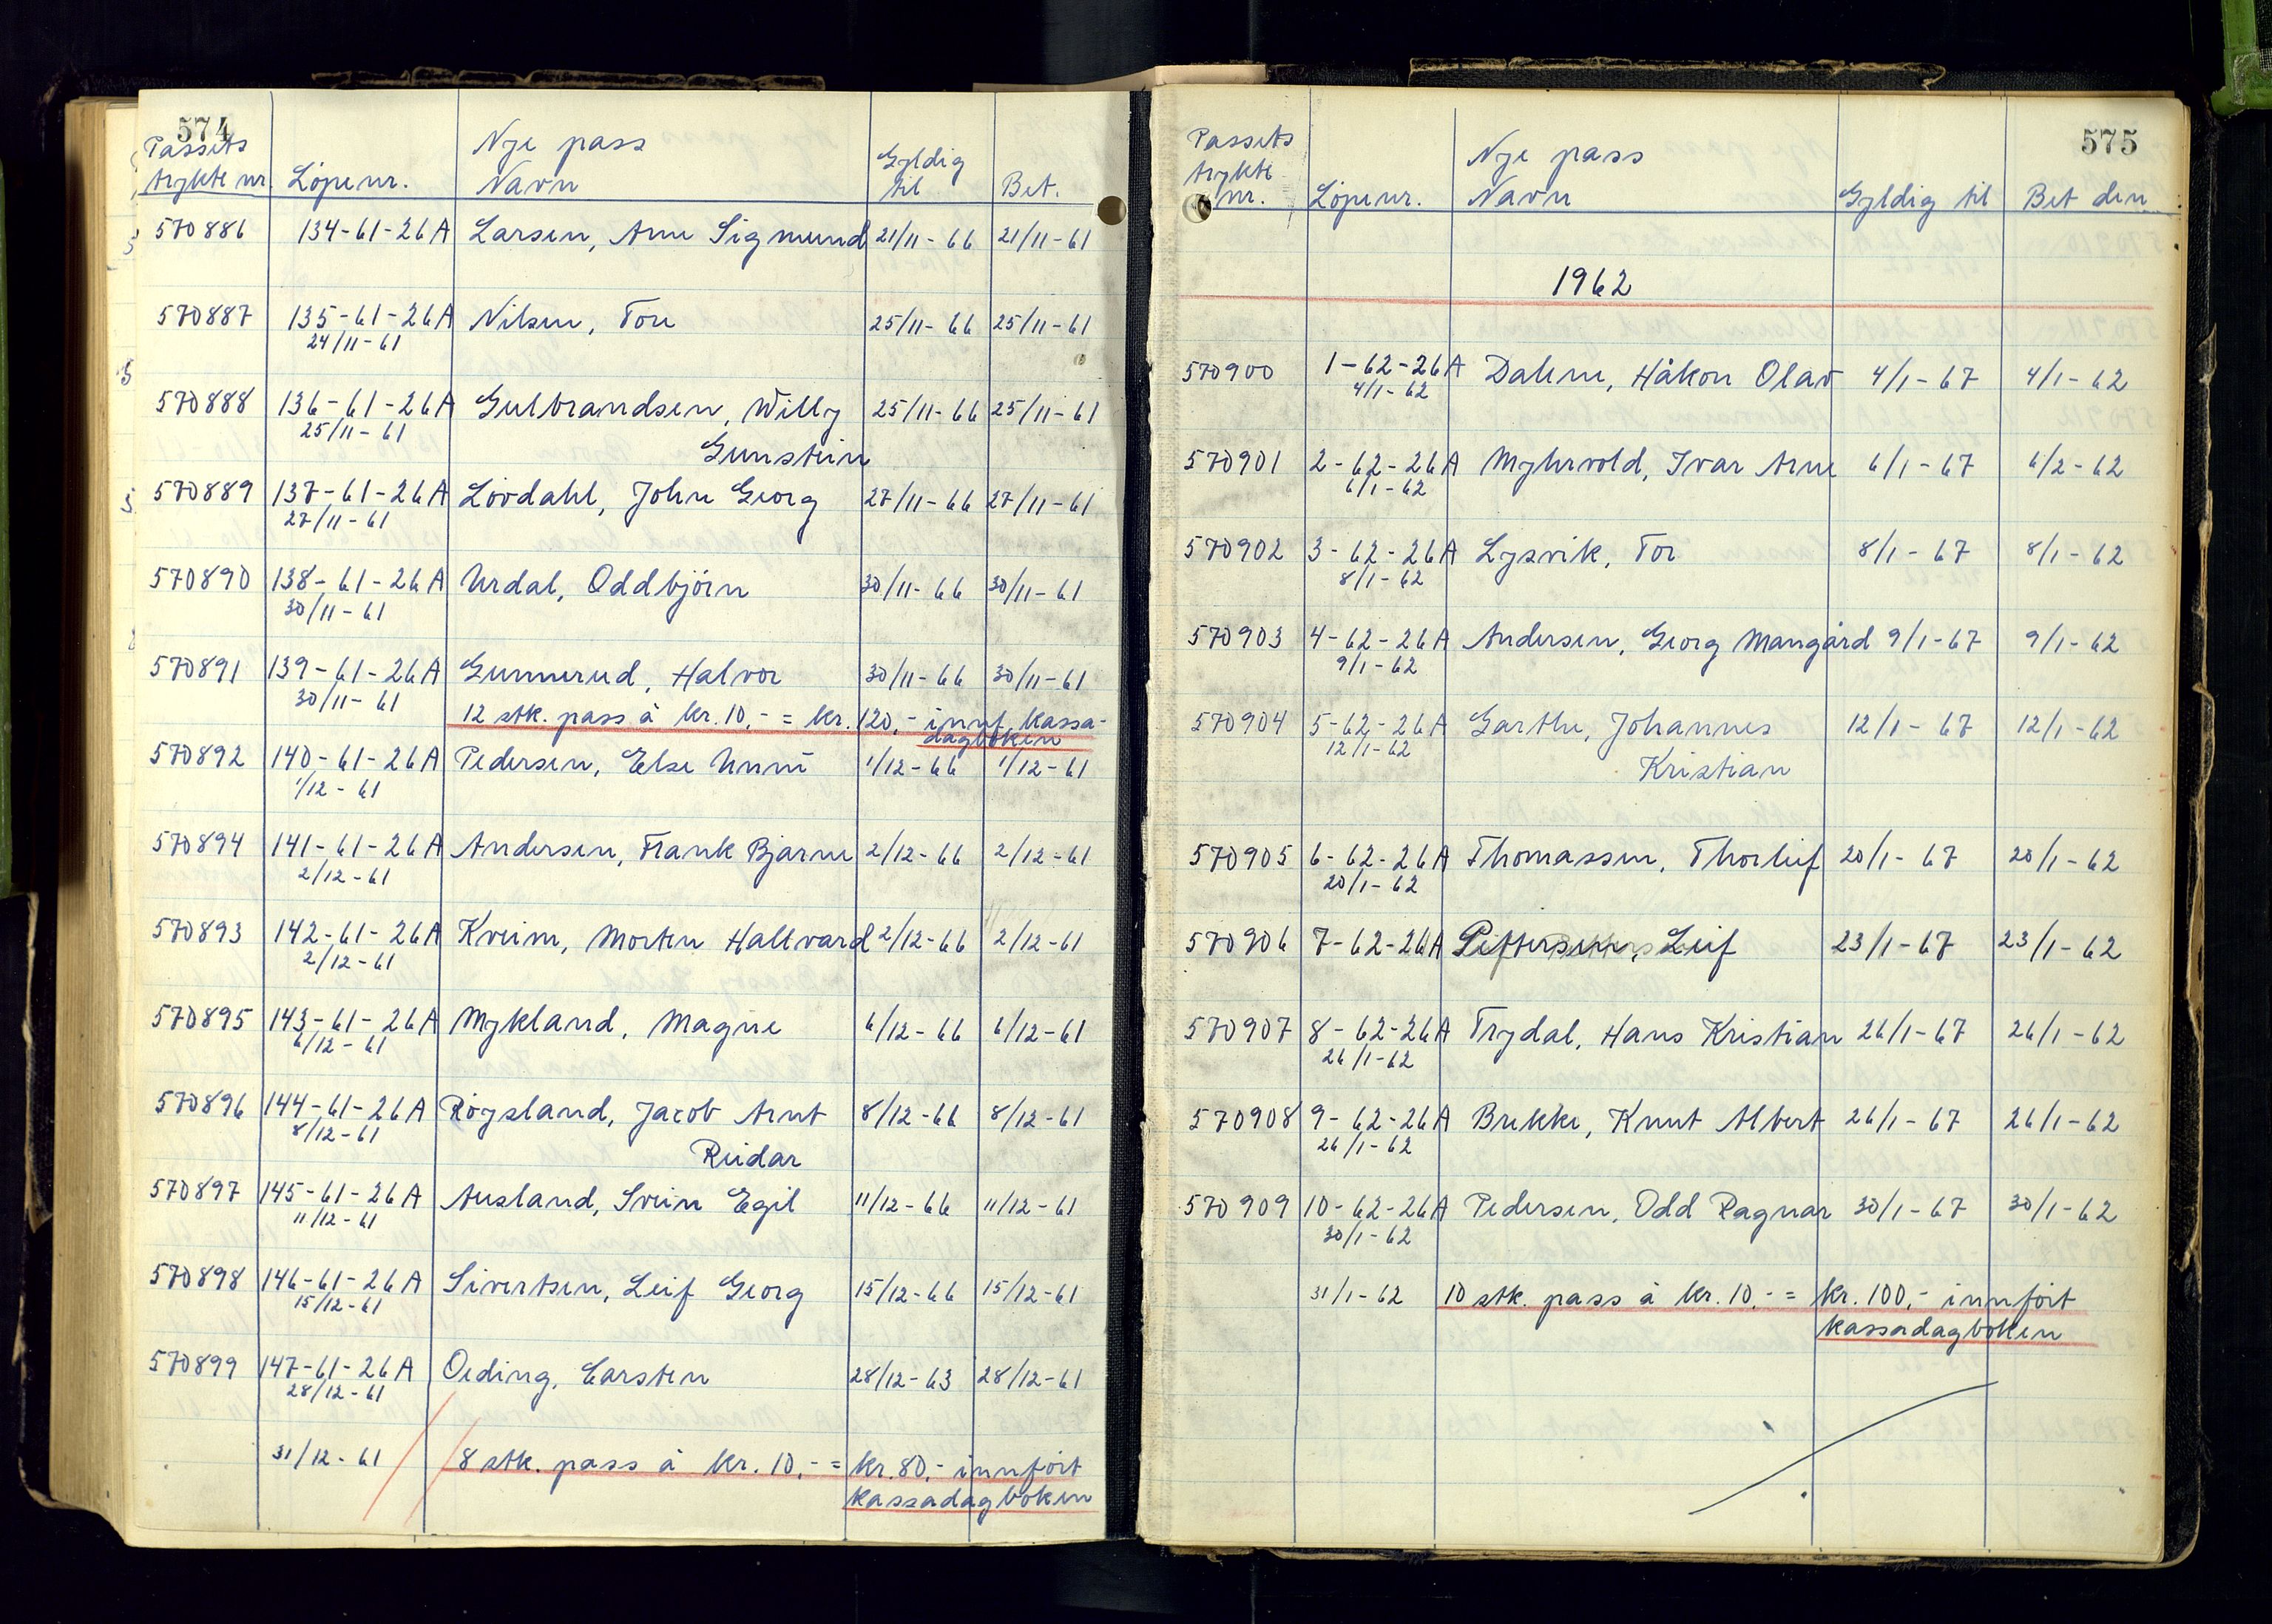 574
Passets
trykte nr. Löpe nr. Nye pass Navn Gyldig til Bet.
570886 134-61-26A Larsen, Arne Sigmund 21/11-66 21/11-61
570887 135-61-26A Nilsen, Tore 25/11-66 25/11-61
24/11-61
570888 136-61-26A Gulbrandsen, Willy 25/11-66 25/11-61
25/11-61 Gunstein
570889 137-61-26A Lövdahl, John Georg 27/11-66 27/11-61
27/11-61
570890 138-61-26A Urdal, Oddbjörn 30/11-66 30/11-61
30/11-61
570891 139-61-26A Gunnerud, Halvor 30/11-66 30/11-61
30/11-61 12 stk. pass à kr. 10,- = kr. 120,- innf. kassa-
dagboken
570892 140-61-26A Pedersen, Else Unni 1/12-66 1/12-61
1/12-61
570894 141-61-26A Andersen, Frank Bjarne 2/12-66 2/12-61
2/12-61
570893 142-61-26A Kveim, Morten Hallvard 2/12-66 2/12-61
2/12-61
570895 143-61-26A Mykland, Magne 6/12-66 6/12-61
6/12-61
570896 144-61-26A Röysland, Jacob Arnt 8/12-66 8/12-61
8/12-61 Reidar
570897 145-61-26A Ausland, Svein Egil 11/12-66 11/12-61
11/12-61
570898 146-61-26A Sivertsen, Leif Georg 15/12-66 15/12-61
15/12-61
570899 147-61-26A Oeding, Carsten 28/12-63 28/12-61
28/12-61
31/12-61 8 stk. pass à kr. 10,- = kr. 80,- innfört
kassadagboken
575
Passets
trykte
nr. Löpe nr. Nye pass Navn Gyldig til Bet den
1962
570900 1-62-26A Dalene, Håkon Olav 4/1-67 4/1-62
4/1-62
570901 2-62-26A Myhrvold, Ivar Arne 6/1-67 6/2-62
6/1-62
570902 3-62-26A Lysvik, Tor 8/1-67 8/1-62
8/1-62
570903 4-62-26A Andersen, Georg Mangård 9/1-67 9/1-62
9/1-62
570904 5-62-26A Garthe, Johannes 12/1-67 12/1-62
12/1-62 Kristian
570905 6-62-26A Thomassen, Thorleif 20/1-67 20/1-62
20/1-62
570906 7-62-26A Pettersen, Leif 23/1-67 23/1-62
570907 8-62-26A Trydal, Hans Kristian 26/1-67 26/1-62
26/1-62
570908 9-62-26A Brekke, Knut Albert 26/1-67 26/1-62
26/1-62
570909 10-62-26A Pedersen, Odd Ragnar 30/1-67 30/1-62
30/1-62
31/1-62 10 stk. pass à kr. 10,- = kr. 100,- innfört
kassadagboken